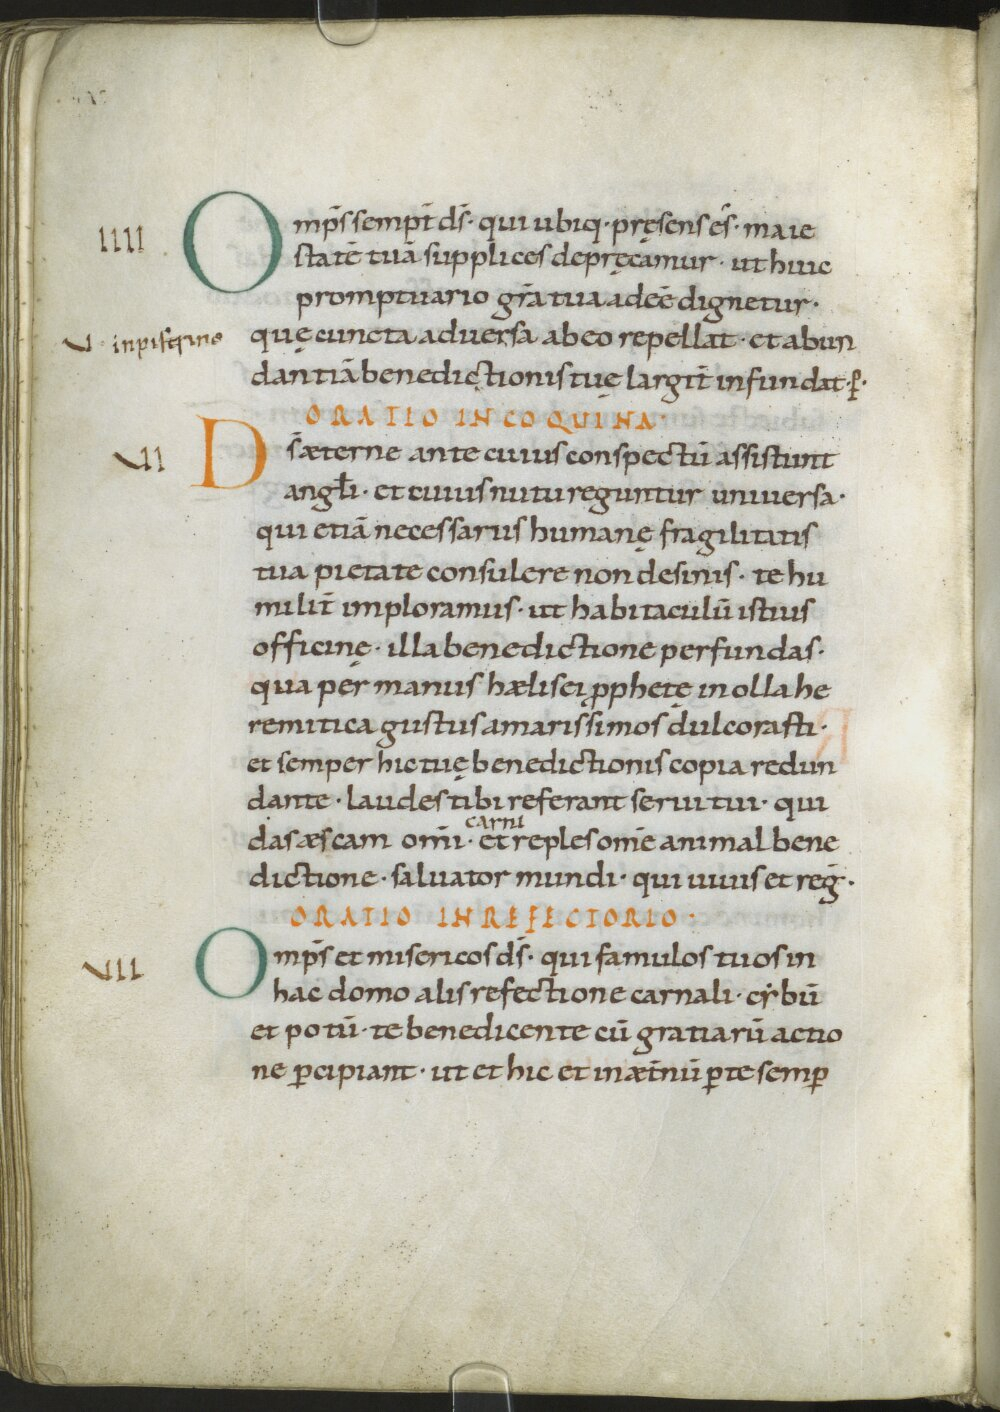 IIII Omp̄s semp̄t d̄s· qui ubiq· pręsens ēs· maie
statē tuā supplices depręcamur· ut huic
promptuario gr̄a tua adeē dignetur·
V· in pistrino quę cuncta aduersa ab eo repellat· et abun
dantiā benedictionis tuę largit̄ infundat· ꝑ·
ORATIO IN COQUINA·
VI D s̄ æterne ante cuius conspectū assistunt
angłi· et cuius nutu reguntur uniuersa·
qui etiā necessariis humanę fragilitatis
tua pietate consulere non desinis· te hu
milit̄ imploramus· ut habitaculū istius
officinę· illa benedictione perfundas·
qua per manus hælisei ꝓphetę in olla he
remitica gustus amarissimos dulcorasti·
et semper hic tuę benedictionis copia redun
dante· laudes tibi referant serui tui· qui
carni
das æscam om̄i· et reples om̄e animal bene
dictione· saluator mundi· qui uiuis et reḡ·
ORATIO IN REFECTORIO·
VII Omp̄s et misericos d̄s· qui famulos tuos in
hac domo alis refectione carnali· cybū
et potū· te benedicente cū gratiarū actio
ne ꝑcipiant· ut et hic et in æt̄nū ꝑ te semꝑ